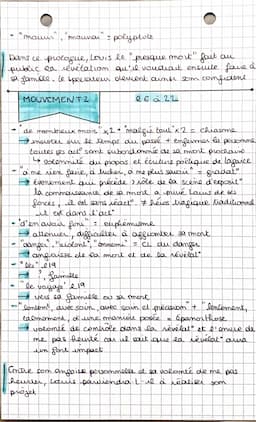 - "mourir", "mourrai" = polyptote
Dans ce prologue, Louis le "presque mort" fait au
public la révélation qu'il voudrait ensuite faire à
sa famille, le spectateur devient ainsi son confident
MOUVEMENT 2
l 6 à 22
- "de nombreux mois" x2 + "malgré tout" x2 =
insister sur le temps qui passe + enfermer le personnage
toutes ses act° sont subordonnées de sa mort prochaine
↳ solennité du propos et écriture poétique de Lagarce
- "à ne rien faire, à tricher, à ne plus savoir" = gradat°
évènement qui précède
la connaissance de sa mort a privé Louis de ses
forces, il est sans réact° ≠ héros tragique traditionnel
il est dans l'act°
- "d'en avoir fini" = euphémisme
atténuer, difficultés à affronter sa mort
- "danger", "violent", "ennemi" = CL du danger
angoisse de la mort et de la révélat°
- "les" l 19
?, famille
- "le voyage" l 19
vers sa famille ou sa mort
- "lentement, avec soin, avec soin et précision" + "lentement,
calmement, d'une manière posée" = épanorthose
volonté de contrôle dans la révélat° et d'envie de
me pas heurté car il sait que la révélat° aura
un fort impact
Entre son angoisse personnelle et sa volonté de ne pas
heurter, Louis parviendra t-il à réaliser son
projet